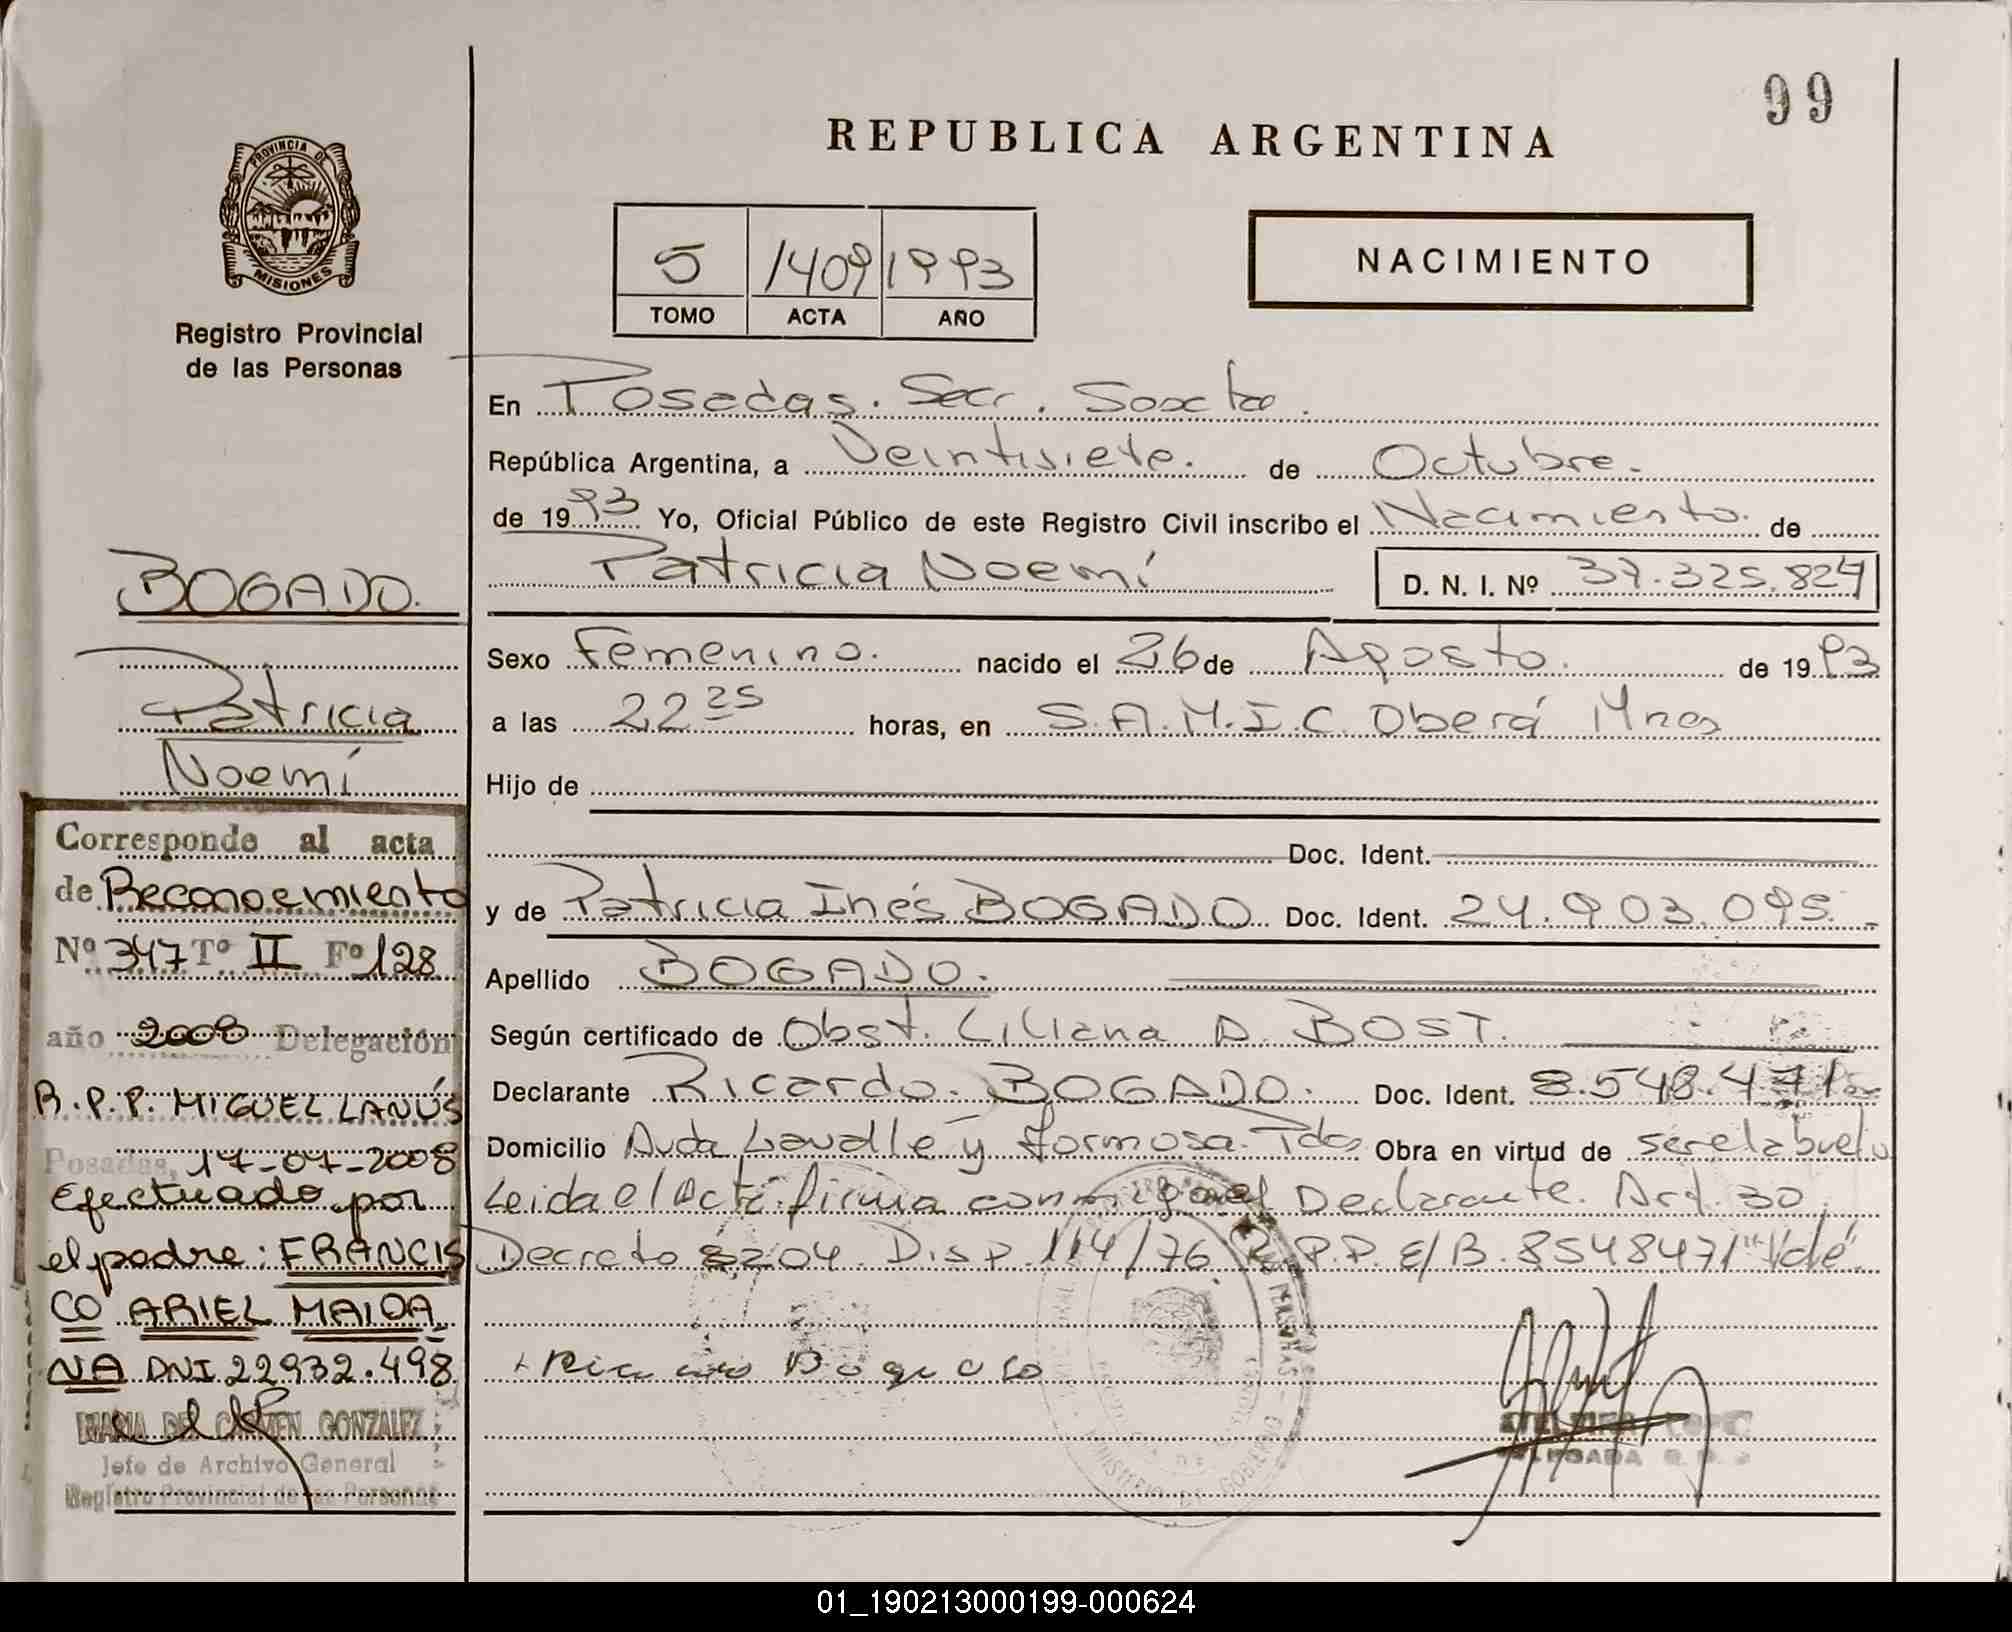 99
REPUBLICA ARGENTINA
PROVINCIA DE
MISIONES
Registro Provincial
de las Personas
5 1409 1993
TOMO ACTA AÑO
NACIMIENTO
En Posadas. Secr. Sexta.
República Argentina, a Veintisiete. de Octubre.
de 1993 Yo, Oficial Público de este Registro Civil inscribo el Nacimiento. de
Patricia Noemí D. N. I. Nº 37.325.824
Sexo Femenino. nacido el 26 de Agosto. de 1993
a las 22 25 horas, en S.A.M.I.C. Oberá Mnes
Hijo de
Doc. Ident.
y de Patricia Inés BOGADO Doc. Ident. 24.903.095.
Apellido BOGADO.
Según certificado de Obst. Liliana A. BOST.
Declarante Ricardo. BOGADO. Doc. Ident. 8.548.471
Domicilio Avda Lavalle y Formosa. Pdas Obra en virtud de ser el abuelo
Leida el Acta firma conmigo el Declarante. Art. 30
Decreto 8204 Disp. 114/76 R.P.P. E/B. 8548471 "Vale".
BOGADO.
Patricia
Noemí
Corresponde al acta
de Reconocimiento
Nº 347 Tº II Fº 128
año 2008 Delegación
R.P.P. MIGUEL LANÚS
Posadas, 17-07-2008
Efectuado por
el padre: FRANCIS
CO ARIEL MAIDA
NA DNI 22.932.498
MARIA DEL CARMEN GONZALEZ
Jefe de Archivo General
Registro Provincial de las Personas
MINISTERIO DE GOBIERNO
01_190213000199-000624